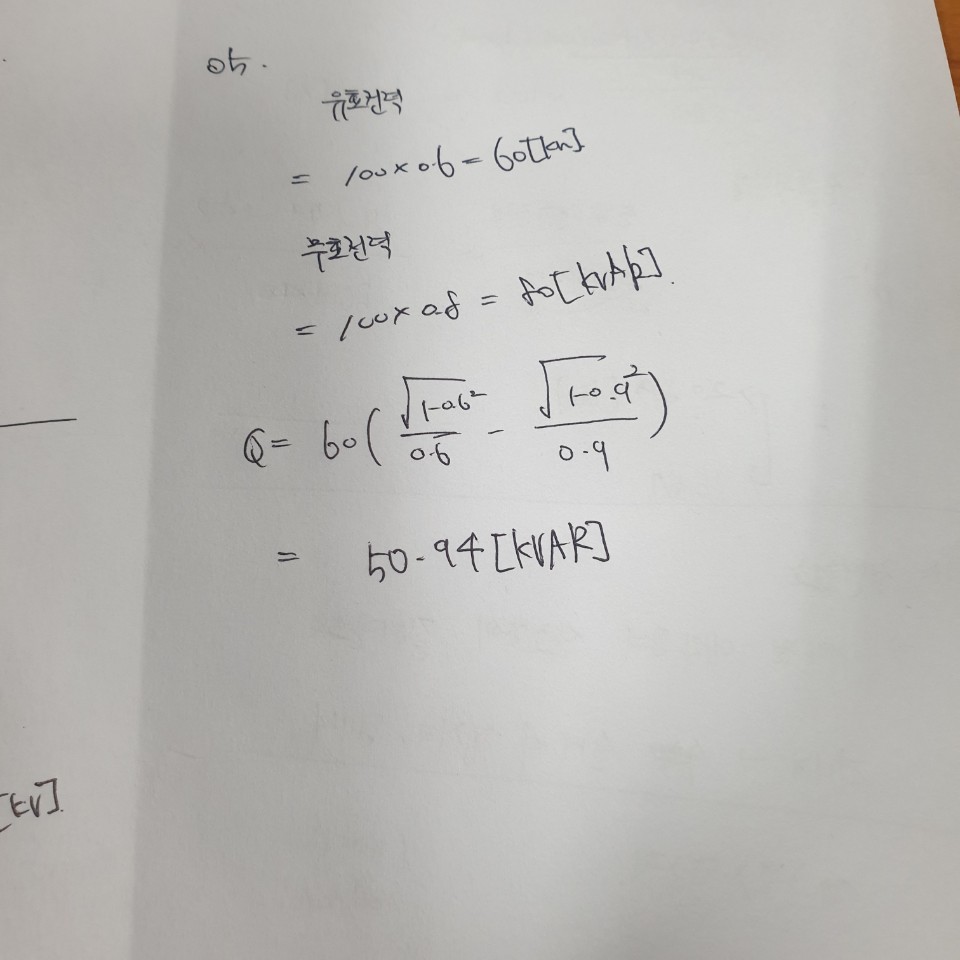 05.
유효전력
= 100 × 0.6 = 60[kW]
무효전력
= 100 × 0.8 = 80[kVAR].
Q = 60(√(1-0.6²)/0.6 - √(1-0.9²)/0.9)
= 50.94[kVAR]
[kV]